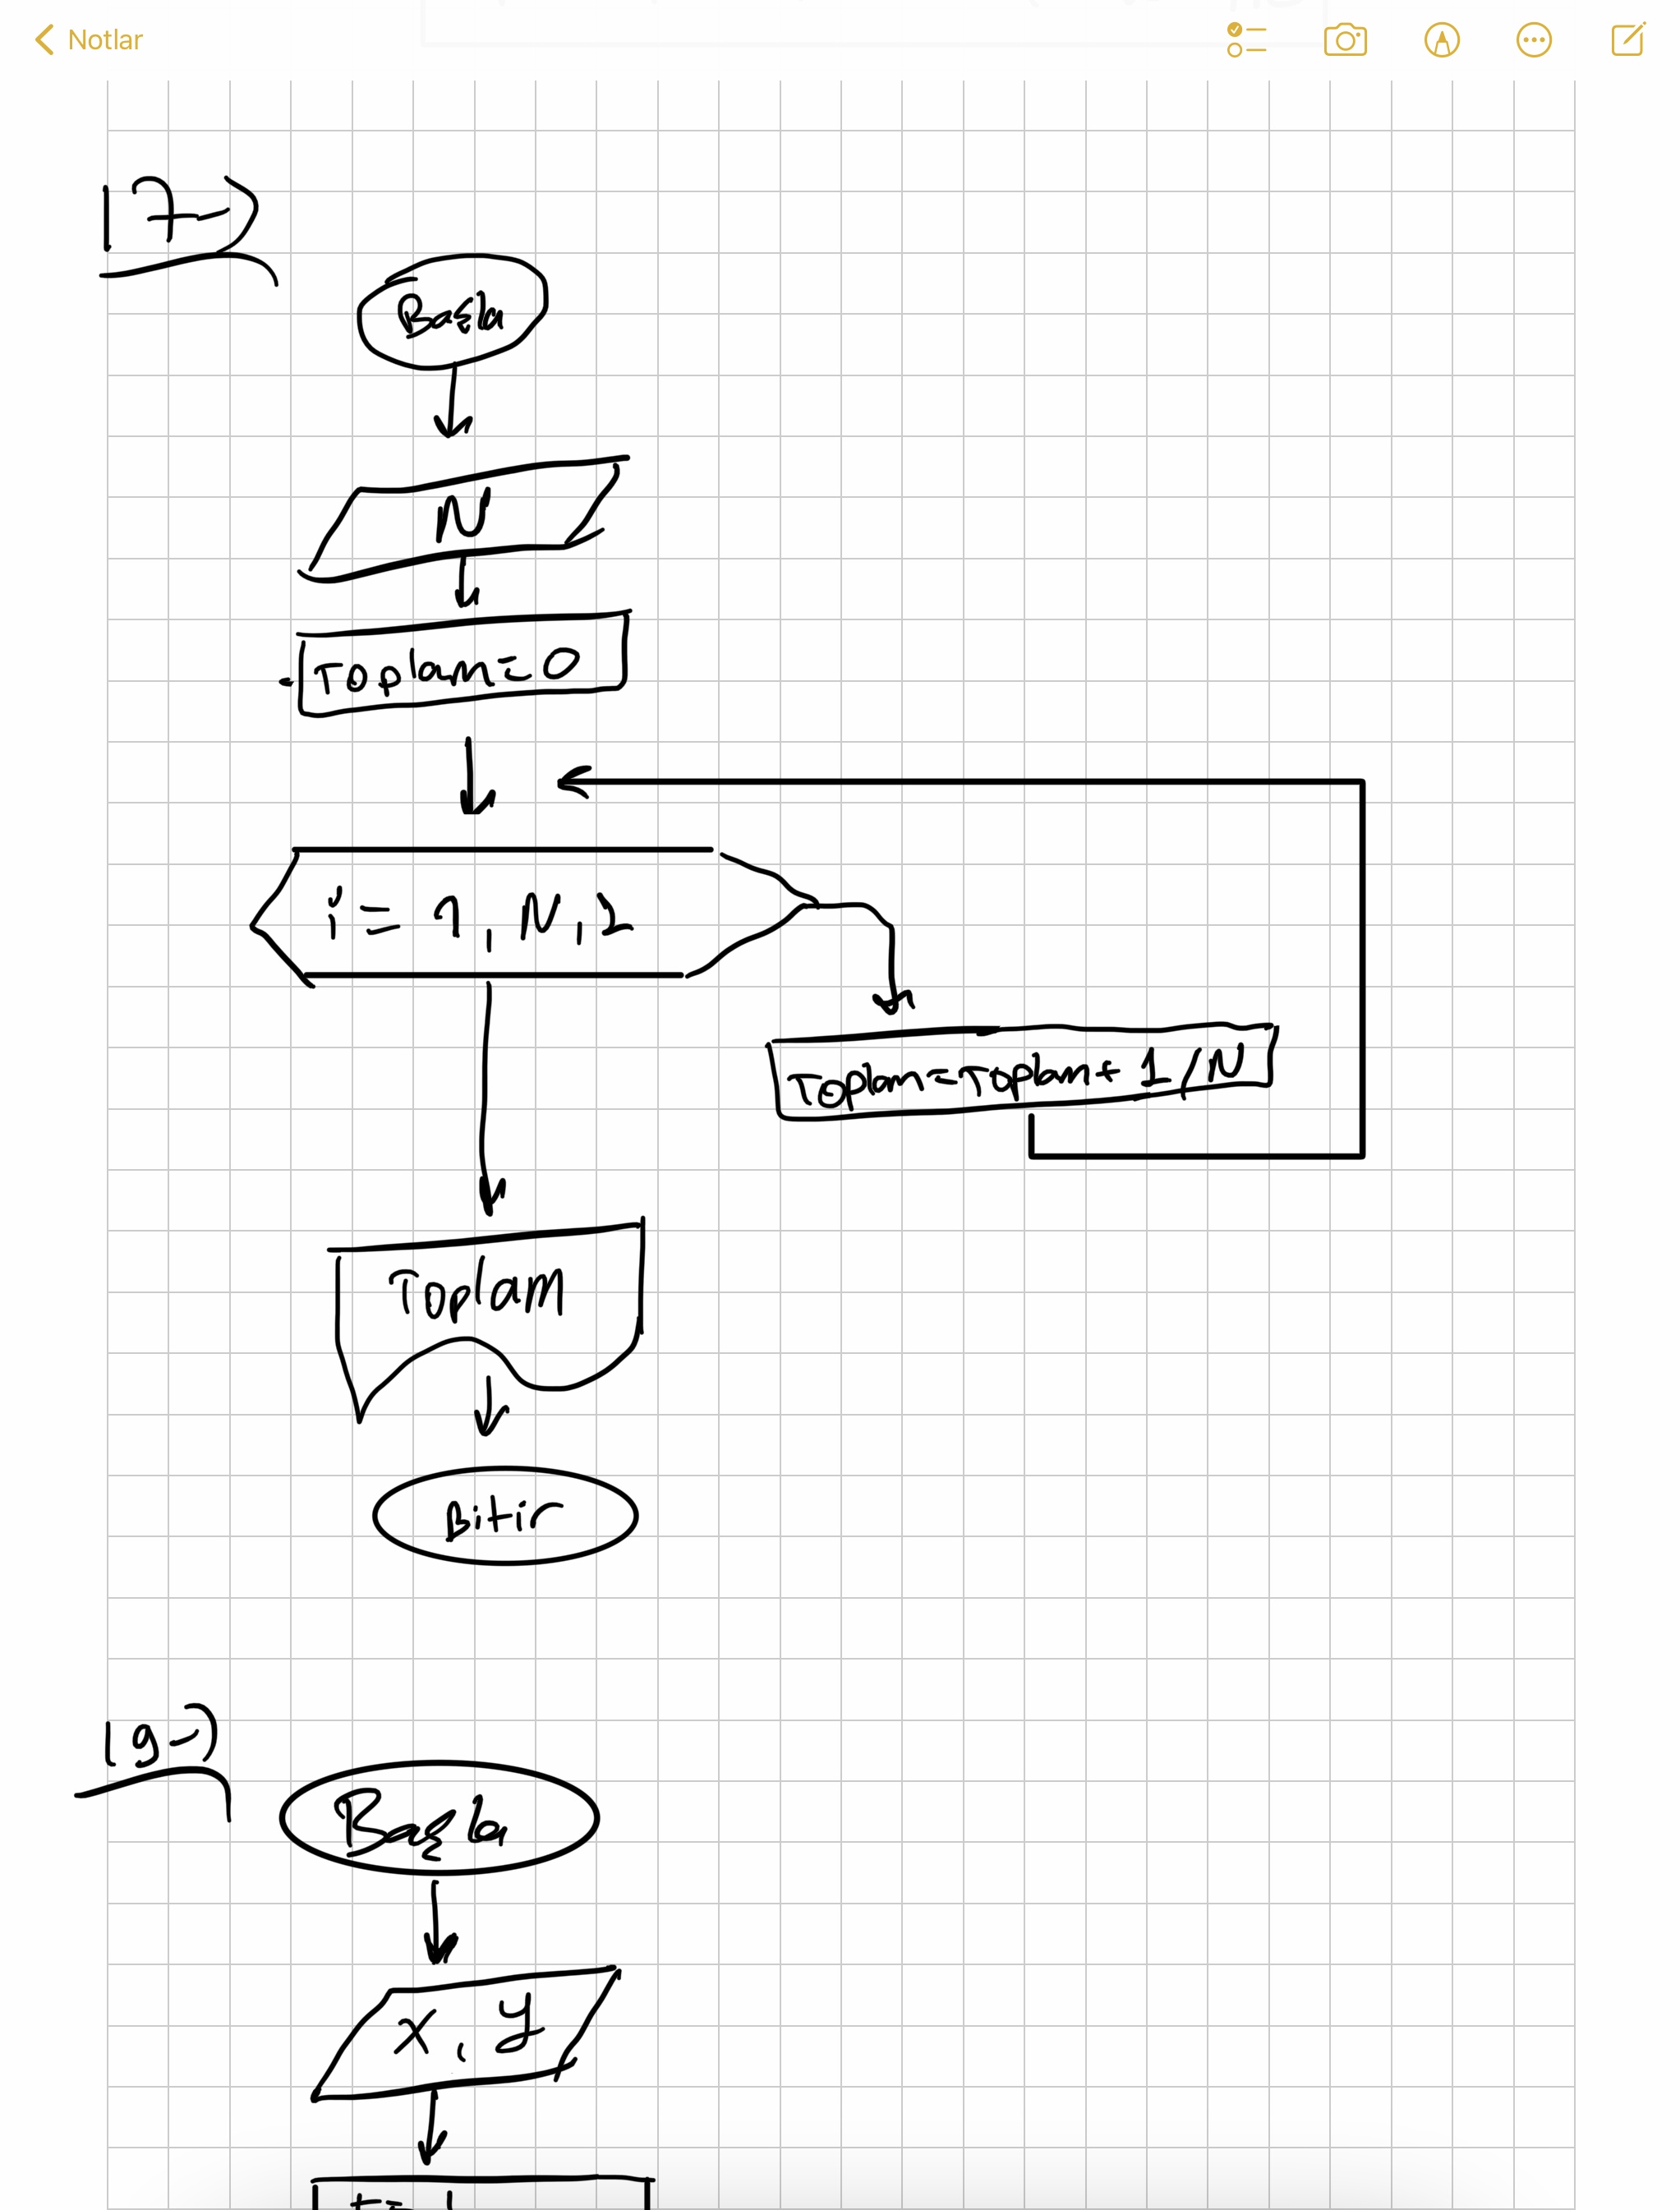 Notlar
17-)
Başla
N
Toplam=0
i = 1, N, 2
Toplam=Toplam+ 1/N
Toplam
Bitir
19-)
Başla
x, y